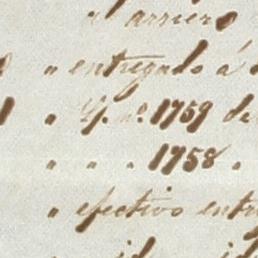 " al arriero
" entregado á
" Y. no. 1759 de
" " " 1758 "
" efectivo entr